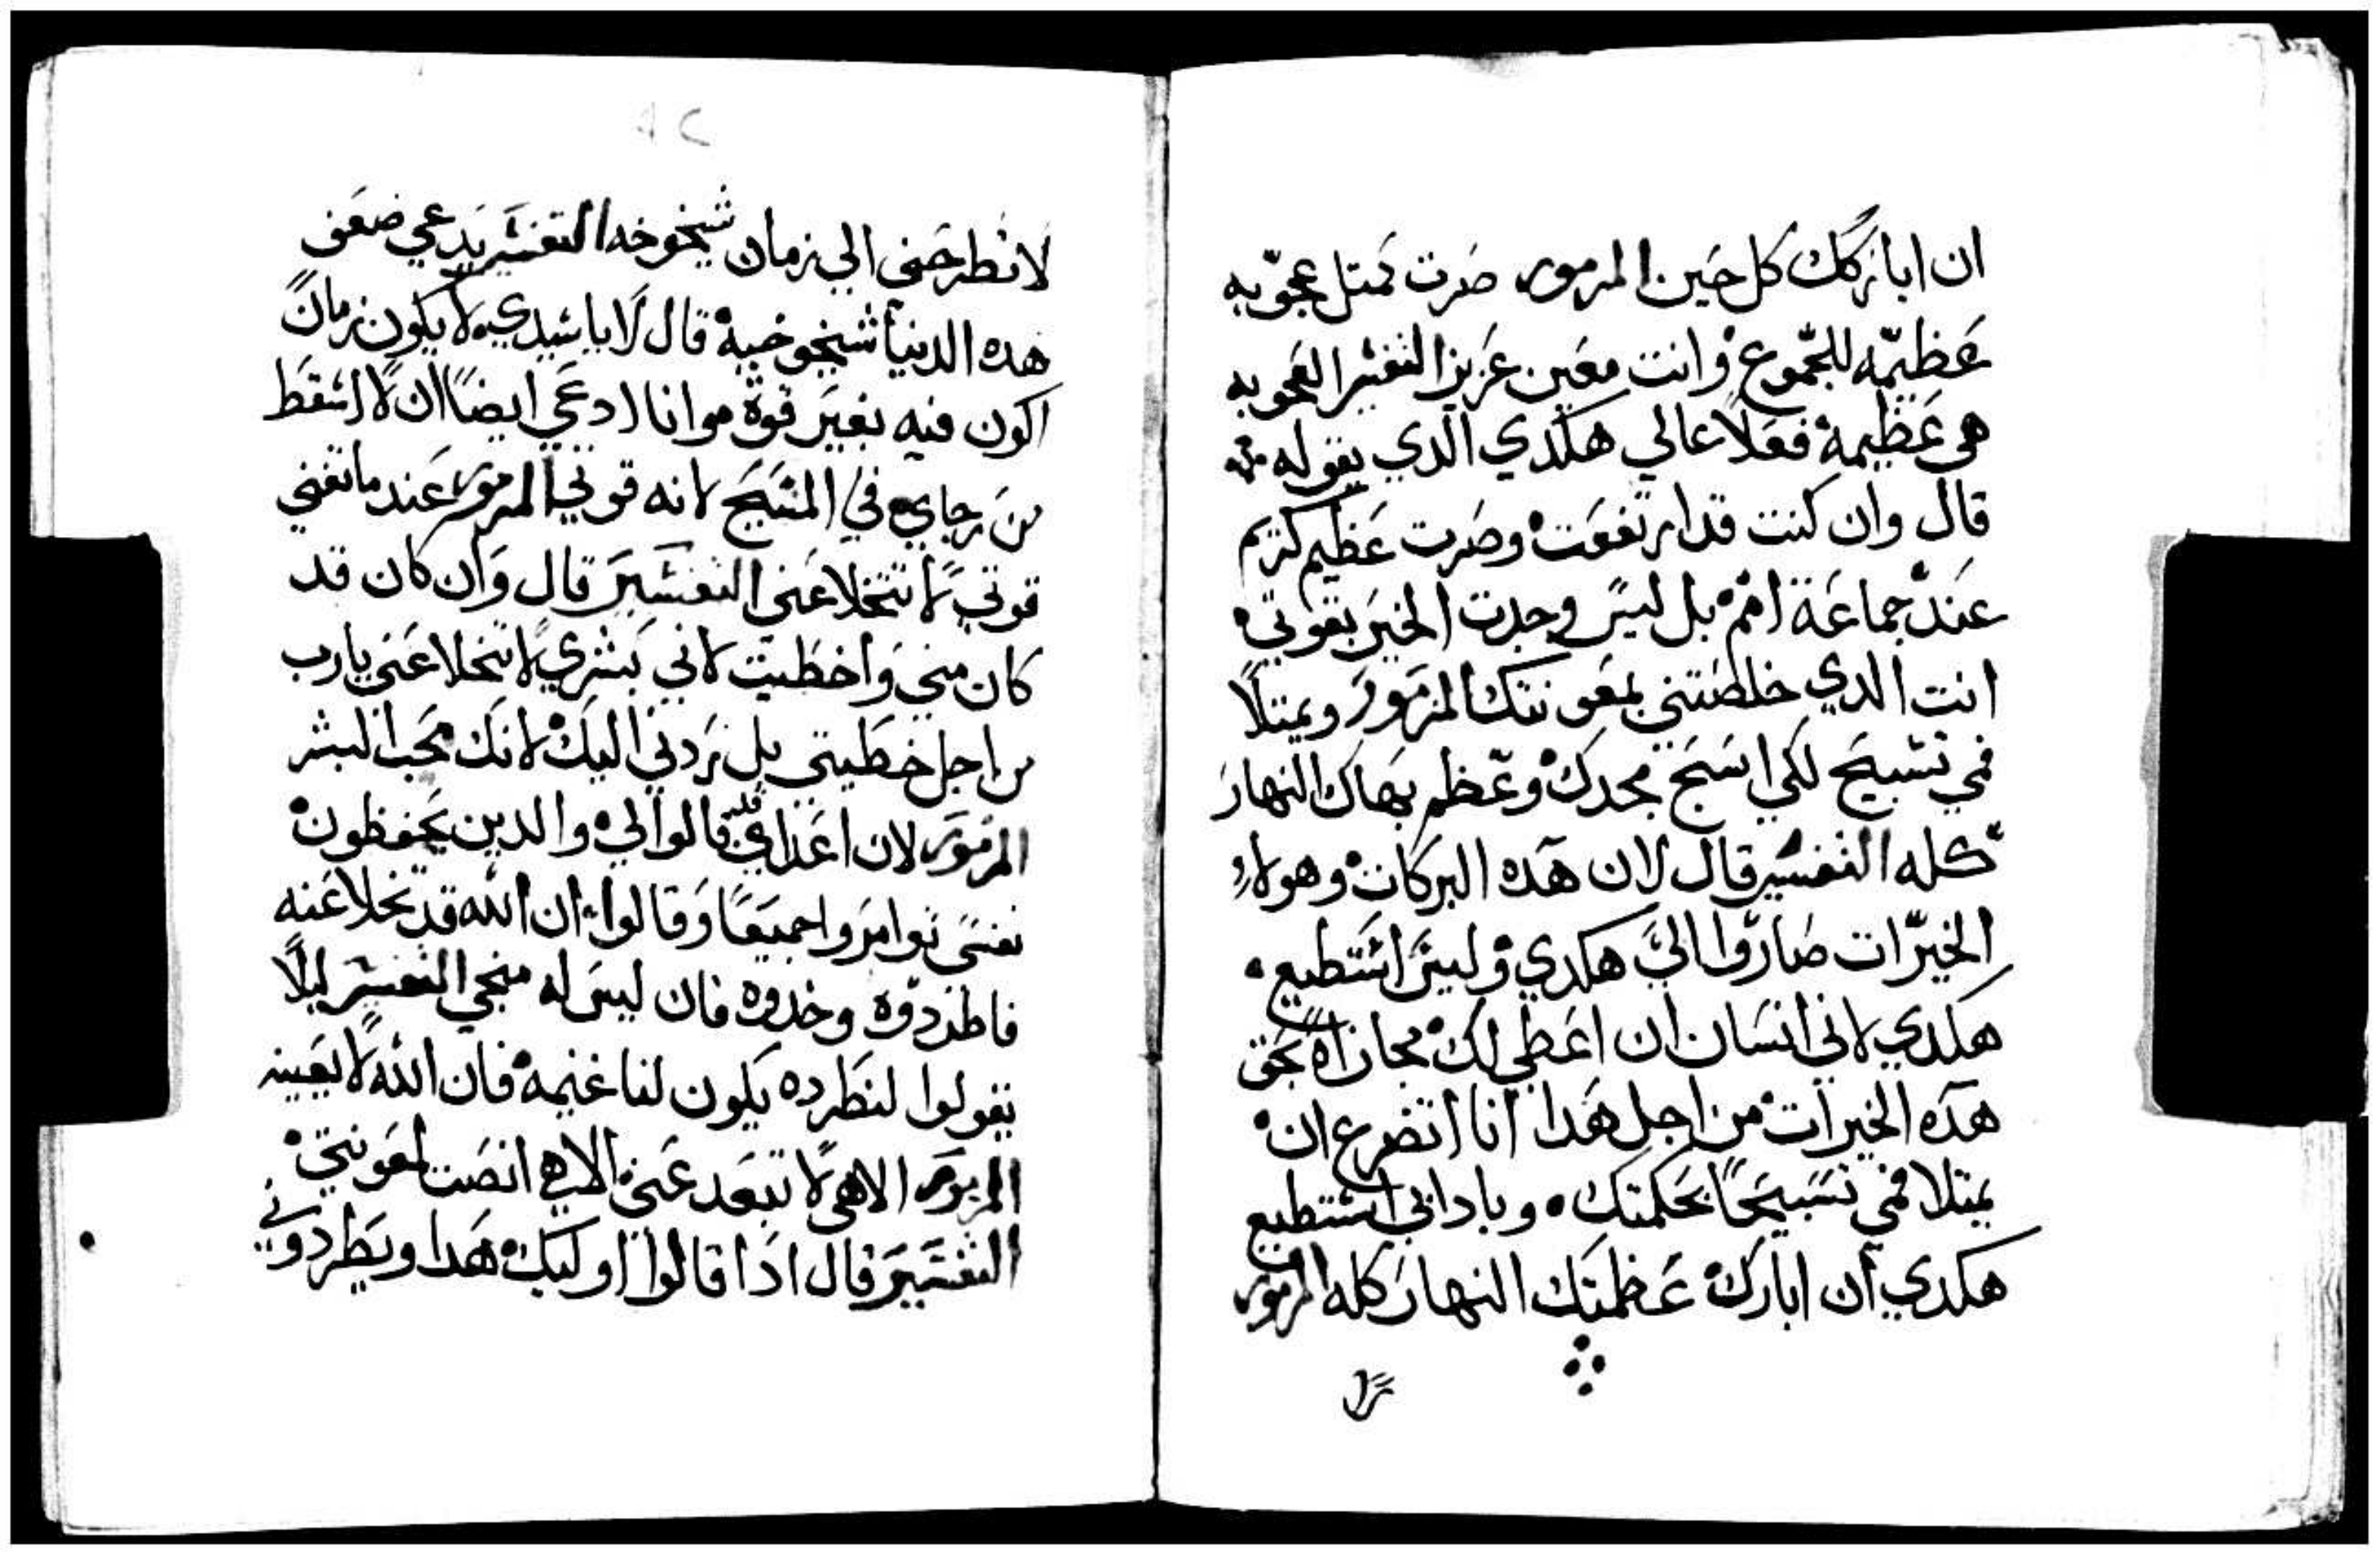 ان اباركك كل حين المزمور صرت كمتل عجوبه
عظيمه للجموع وانت معين عزيز التفسير العجوبه
هي عظيمة فعلا عالي هكدي الدي يقوله
قال وان كنت قد ارتفعت وصرت عظيم كريم
عند جماعة امم بل ليس وجدت الخير بقوتي
انت الدي خلصتني بمعونتك المزمور ويمتلا
فمي تسبيح لكي اسبح مجدك وعظم بهاك النهار
كله التفسير قال لان هده البركات وهولاء
الخيرات صاروا الي هكدي وليس استطيع
هكدي لاني انسان ان اعطي لك مجازاة بحق
هده الخيرات من اجل هدا انا اتضرع ان
يمتلا فمي تسبيحا بحكمتك وباداني استطيع
هكدي ان ابارك عظمتك النهار كله المزمور
لا
٨٢
لا تطرحني الي زمان شيخوخه التفسير يدعي ضعف
هده الدنيا شيخوخية قال لا يا سيدي لا يكون زمان
اكون فيه بغير قوة موانا ادعي ايضا ان لا اسقط
من رجاي في المسيح لانه قوتي المزمور عند ما تفني
قوتي لا تتخلا عني التفسير قال وان كان قد
كان مني واخطيت لاني بشري لا تتخلا عني يارب
من اجل خطيتي بل تردني اليك لانك محب البشر
المزمور لان اعداي قد قالوا لي والدين يحفظون
نفسي توامروا جميعا وقالوا ان الله قد تخلا عنه
فاطردوه وخدوه فان ليس له منجي التفسير ليلا
يقولوا لنطرده يكون لنا غنيمه فان الله لا يعينه
المزمور الاهي لا تبعد عني الاهي انصت لمعونتي
التفسير قال ادا قالوا اوليك هدا ويطردوني